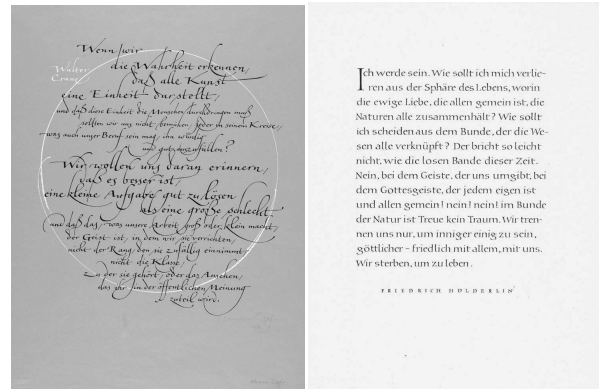 Wenn wir
die Wahrheit erkennen,
daß alle Kunst
eine Einheit darstellt,
und daß diese Einheit die Menschen durchdringen muß
sollten wir uns nicht bemühen, jeder in seinem Kreise,
was auch unser Beruf sein mag, ihn würdig
und gut auszufüllen?
Wir wollen uns daran erinnern,
daß es besser ist,
eine kleine Aufgabe gut zu lösen
als eine große schlecht.
und daß das, was unsre Arbeit groß oder klein macht,
der Geist ist, in dem wir sie verrichten,
nicht der Rang, den sie zufällig einnimmt
nicht die Klasse,
zu der sie gehört, oder das Ansehen,
das ihr in der öffentlichen Meinung
zuteil wird.
Walter
Crane
Ich werde sein. Wie sollt ich mich verlie-
ren aus der Sphäre des Lebens, worin
die ewige Liebe, die allen gemein ist, die
Naturen alle zusammenhält? Wie sollt
ich scheiden aus dem Bunde, der die We-
sen alle verknüpft? Der bricht so leicht
nicht, wie die losen Bande dieser Zeit.
Nein, bei dem Geiste, der uns umgibt, bei
dem Gottesgeiste, der jedem eigen ist
und allen gemein! nein! nein! im Bunde
der Natur ist Treue kein Traum. Wir tren-
nen uns nur, um inniger einig zu sein,
göttlicher - friedlich mit allem, mit uns.
Wir sterben, um zu leben.
FRIEDRICH HÖLDERLIN